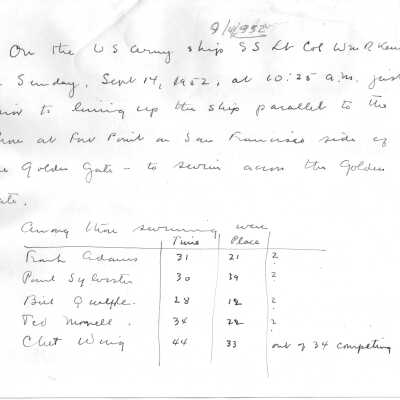 9/1952
On the US Army ship SS Lt Col Wm R Ken
Sunday, Sept 14, 1952, at 10:25 a.m. just
to lining up the ship parallel to the
at Fort Point on San Francisco side of
Golden Gate - to swim across the Golden
ate.
Among those swimming were
Time Place
Frank Adams 31 21 ?
Paul Sylvester 30 19 ?
Bill 28 18 ?
Ted 34 28 ?
Chet Wing 44 33 out of 34 competing